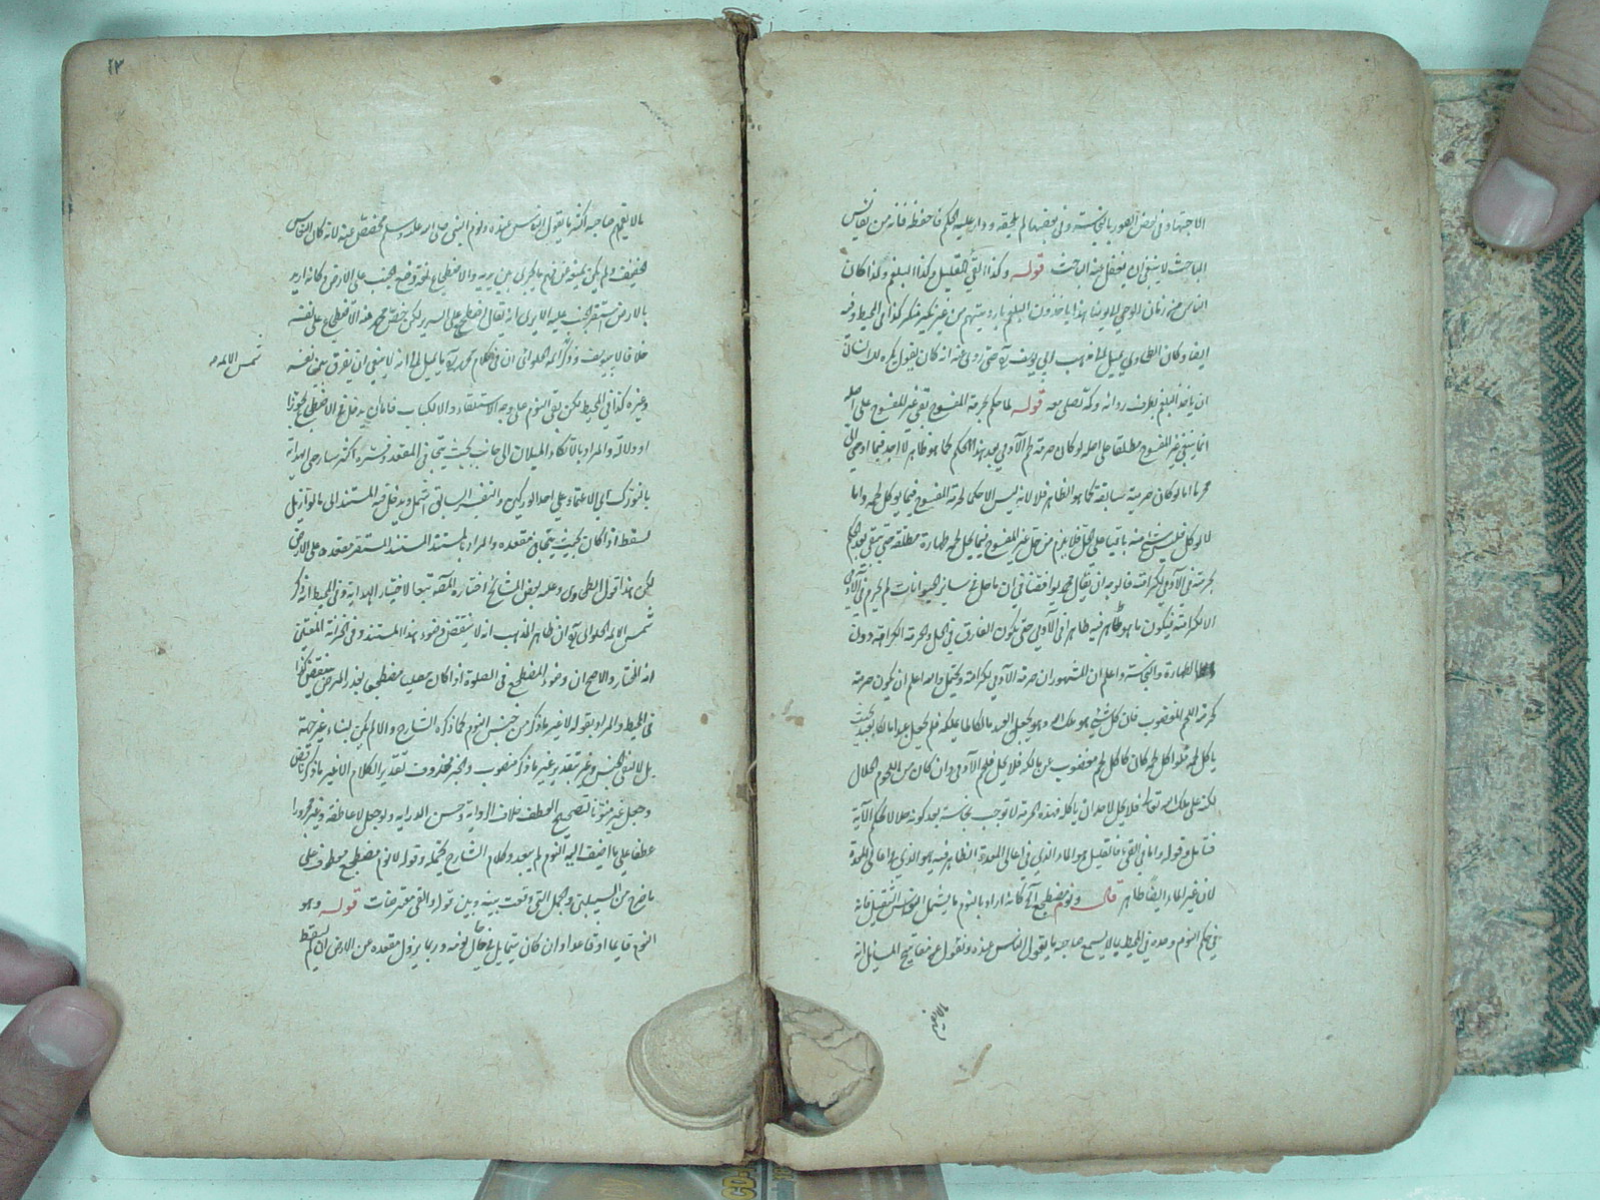 الاجتهاد في بعض الصور بالنجاسة وفي بعضها لم يلحقه ودار عليه الحكم فاحفظه فانه من نفائس
المباحث لا ينبغي ان يغفل عنه الباحث قوله وكذا القيء القليل وكذا البلغم وكذا كان
الناس من زمان الوحي الى يومنا هذا ياخذون البلغم بارديتهم من غير نكير منكر كذا في المحيط وفيه
ايضا وكان الطحاوي يميل الى مذهب ابي يوسف حتى روي عنه انه كان يقول يكره للانسان
ان ياخذ البلغم بطرف ردائه وكذا يصلي معه قوله لما حكم بحرمة المسفوح بقي غير المسفوح على اصله
انما يبقى غير المسفوح مطلقا على اصله لو كان حرمة لحم الآدمي بعد هذا الحكم كما هو ظاهر لا اجد فيما اوحي الي
محرما اما لو كان حرمته سابقة كما هو الظاهر فلا لانه ليس الاحكم لحرمة المسفوح فيما يوكل لحمه واما
لا يوكل فليس شيء منه باقيا على الحل فلا يلزم من حل غير المسفوح فيما يحل لحمه طهارة مطلقة حتى يبقى بعد الحكم
بحرمته في الآدمي لكرامته فالوجه ان يقال
الا لكرامته فيكون ما هو طاهر فيه طاهرا في الآدمي حتى يكون الفارق في الحل والحرمة الكرامة دون
الطهارة والنجاسة واعلم ان المشهور ان حرمة الآدمي لكرامته ويحتمل والله اعلم ان يكون حرمته
كحرمة اللحم المغصوب فان كل شيء هو ملك الله وهو يجعل العبد مالكا لما يملكه فلم يجعل عبدا مالكا بحيث
ياكل لحمه فلو اكل لحمه كان كاكل لحم مغصوب عن مالكه فلا يحل فلحم الآدمي وان كان من اللحوم الحلال
لكنه على ملك الله تعالى فلا يحل لاحد ان ياكله فهذه الحرمة لا توجب نجاسة بعد كونه حلالا بحكم الآية
فتامل وقوله واما في القيء فالقليل هو الماء الذي في اعالي المعدة الظاهر فيه هو الذي في اعالي المعدة
لان غير الماء ايضا طاهر قال ونوم مضطجع آه كانه اراد بالنوم ما يشمل النعاس الثقيل فانه
في حكم النوم وحده في المحيط بما لا يسمع صاحبه ما يقول الناس عنده ونقول عن مفاتيح المسائل انه
ما لا يفهم صاحبه اكثر ما يقول الناس عنده ونوم النبي صلى الله عليه وسلم مخصص عنه لانه كان كالنعاس
الخفيف ولم يكن يمنعه عن فهم ما يجري بين يديه والاضطجاع لغة وضع الجنب على الارض وكانه اريد
بالارض مستقر الجنب عليه الا يرى انه يقال اضطجع على السرير لكن خصص محمد هذه الاضطجاع على نفسه
خلافا لابي يوسف وذكر الحلواني ان في كلام محمد ما يميل الى انه لا ينبغي ان يفرق بين نفسه
شمس الائمة
وغيره كذا في المحيط لكن بقي النوم على وجه الاستلقاء والانكباب فاما ان يدخل في الاضطجاع تجوزا
او دلالة والمراد بالاتكاء الميلان الى جانب بحيث يتجافى المقعد وفسره اكثر شارحي الهداية
بالتورك اي الاعتماد على احد الوركين والتفسير السابق اشمل ويدخل فيه المستند الى ما لو ازيل
لسقط اذا كان بحيث يتجافى مقعده والمراد بالمستند المستند المستقر مقعده على الارض
لكن هذا قول الطحاوي وعليه بعض المشايخ اختاره المص تبعا لاختيار الهداية وفي المحيط انه ذكر
شمس الائمة الحلواني ان ظاهر المذهب انه لا ينتقض وضوء هذا المستند وفي خزانة المفتين
انه المختار والاصح ان وضوء المضطجع في الصلوة اذا كان مصليا مضطجعا بعذر المرض ينتقض كذا
في المحيط والمراد بقوله لا غير ما ذكر من جنس النوم كما ذكره الشارح والا لم يكن لبناء غير جهة
بل لا لنفي الجنس وغير بتقدير غير ما ذكر منصوب والخبر محذوف تقدير الكلام لا غير ما ذكر ناقض
وجعل غير منونا لتصحيح العطف خلاف الرواية وحسن الدراية ولو جعل لا عاطفة وغير مجرورا
عطفا على ما اضيف اليه النوم لم يبعد وكلام الشارح يحتمله وقوله لا نوم مضطجع معطوف على
ما خرج من السبيلين والجمل التي وقعت بينه وبين قوله والقيء معترضات قوله وهو
النوم قائما او قاعدا وان كان يتمايل في حال نومه وربما يزول مقعده عن الارض ان لم يسقط